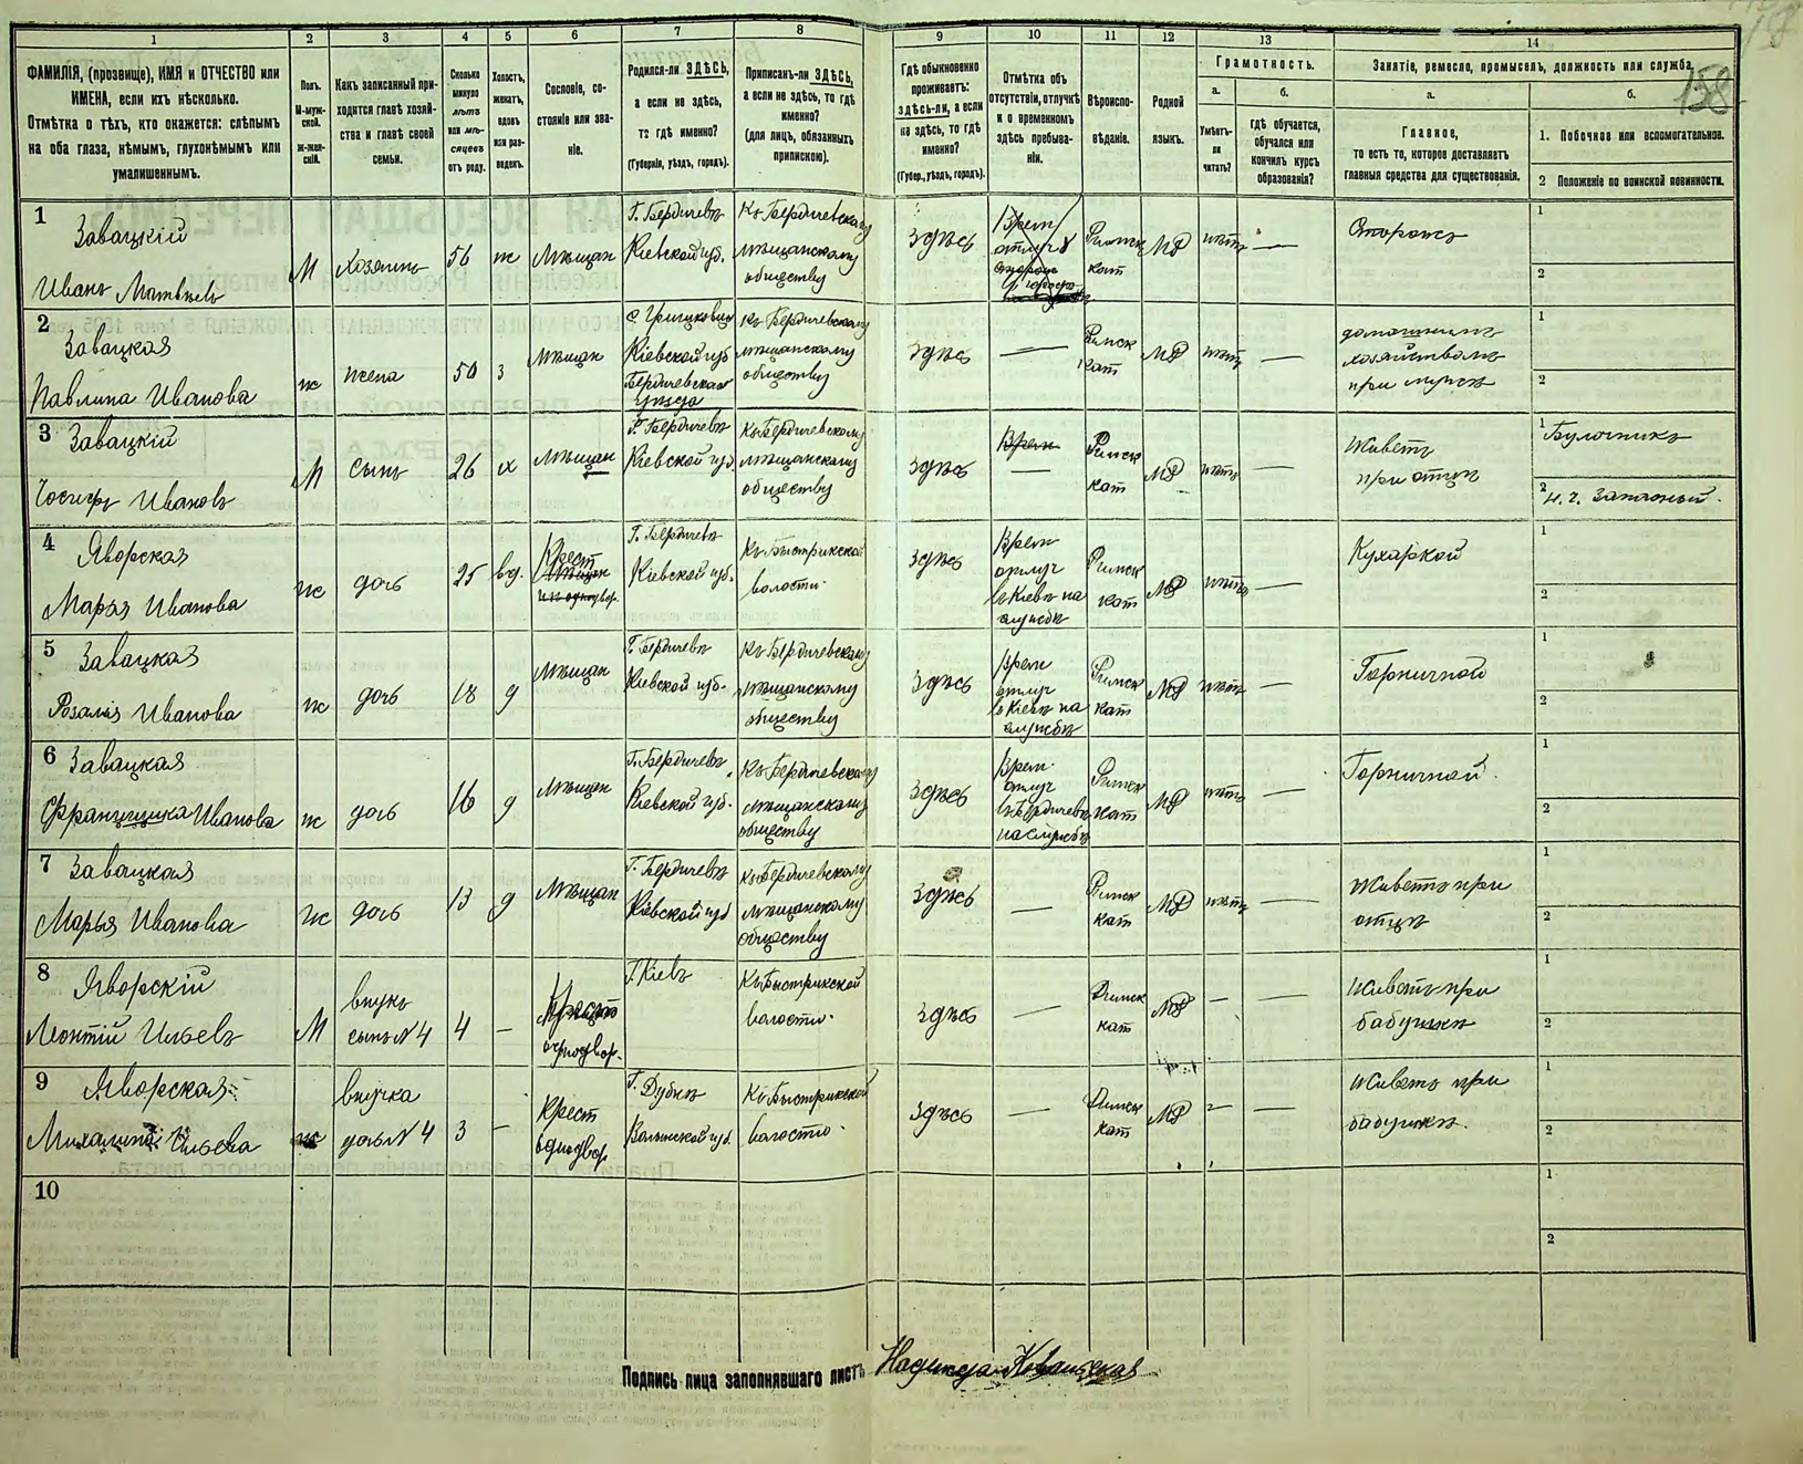 158
1 2 3 4 5 6 7 8 9 10 11 12 13 14
ФАМИЛІЯ, (прозвище), ИМЯ и ОТЧЕСТВО или
ИМЕНА, если ихъ нѣсколько.
Отмѣтка о тѣхъ, кто окажется: слѣпымъ
на оба глаза, нѣмымъ, глухонѣмымъ или
умалишеннымъ.
Полъ.
М-муж-
ской.
ж-жен-
скій.
Какъ записанный при-
ходится главѣ хозяй-
ства и главѣ своей
семьи.
Сколько
минуло
лѣтъ
или мѣ-
сяцевъ
отъ роду.
Холостъ,
женатъ,
вдовъ
или раз-
веденъ.
Сословіе, со-
стояніе или зва-
ніе.
Родился-ли ЗДѢСЬ,
а если не здѣсь,
то гдѣ именно?
(Губернія, уѣздъ, городъ).
Приписанъ-ли ЗДѢСЬ,
а если не здѣсь, то гдѣ
именно?
(для лицъ, обязанныхъ
припискою).
Гдѣ обыкновенно
проживаетъ:
здѣсь-ли, а если
не здѣсь, то гдѣ
именно?
(Губер., уѣздъ, городъ).
Отмѣтка объ
отсутствіи, отлучкѣ
и о временномъ
здѣсь пребыва-
ніи.
Вѣроиспо-
вѣданіе.
Родной
языкъ.
Грамотность.
а.
Умѣетъ-
ли
читать?
б.
Гдѣ обучается,
обучался или
кончилъ курсъ
образованія?
Занятіе, ремесло, промыселъ, должность или служба.
а.
Главное,
то есть то, которое доставляетъ
главныя средства для существованія.
б.
1. Побочное или вспомогательное.
2 Положеніе по воинской повинности.
1
Завацкій
Иванъ Матвѣевъ
М
Хозяинъ
56
ж
Мѣщан
Г. Бердичевъ
Кіевской губ.
Къ Бердичевскому
мѣщанскому
обществу
Здѣсь
Римск
кат
нѣтъ
—
Сторожъ
1
2
2
Завацкая
Павлина Иванова
ж
жена
50
з
Мѣщан
Кіевской губ
Бердичевскаго
Уѣзда
Къ Бердичевскому
мѣщанскому
обществу
Здѣсь
—
Римск
кат
нѣтъ
—
домашнимъ
хозяйствомъ
при мужѣ
1
2
3
Завацкій
Іосифъ Ивановъ
М
сынъ
26
х
Мѣщан
Г. Бердичевъ
Кіевской губ
Къ Бердичевскому
мѣщанскому
обществу
Здѣсь
Врем
—
Римск
кат
нѣтъ
—
Живетъ
при отцѣ
1 Булочникъ
2 н. ч. Запасный.
4
Яворская
Марья Иванова
ж
дочь
25
вд.
Крест
Г. Бердичевъ
Кіевской губ.
Къ Быстрикской
волости
Здѣсь
Врем
отлуч
въ Кіевъ на
службѣ
Римск
кат
нѣтъ
—
Кухаркой
1
2
5
Завацкая
Розалія Иванова
ж
дочь
18
д
Мѣщан
Г. Бердичевъ
Кіевской губ.
Къ Бердичевскому
мѣщанскому
обществу
Здѣсь
Врем
отлуч
въ Кіевъ на
службѣ
Римск
кат
нѣтъ
—
Горничной
1
2
6
Завацкая
Францишка Иванова
ж
дочь
16
д
Мѣщан
Г. Бердичевъ
Кіевской губ.
Къ Бердичевскому
мѣщанскому
обществу
Здѣсь
Врем.
отлуч
въ Бердичевъ
на службѣ
Римск
кат
нѣтъ
—
Горничной.
1
2
7
Завацкая
Марья Иванова
ж
дочь
13
д
Мѣщан
Г. Бердичевъ
Кіевской губ
Къ Бердичевскому
мѣщанскому
обществу
Здѣсь
—
Римск
кат
нѣтъ
—
Живетъ при
отцѣ
1
2
8
Яворскій
Леонтій Ильевъ
М
внукъ
сынъ N 4
4
—
однодвор.
Г. Кіевъ
Къ Быстрикской
волости.
Здѣсь
—
Римск
кат
—
—
Живетъ при
бабушкѣ
1
2
9
Яворская
Михалина Ильева
ж
внучка
дочь N 4
3
—
Крест
однодвор
Г. Дубнѣ
Волынской губ.
Къ Быстрикской
волости.
Здѣсь
—
Римск
кат
—
—
Живетъ при
бабушкѣ.
1
2
10
1
2
Подпись лица заполнявшаго листъ